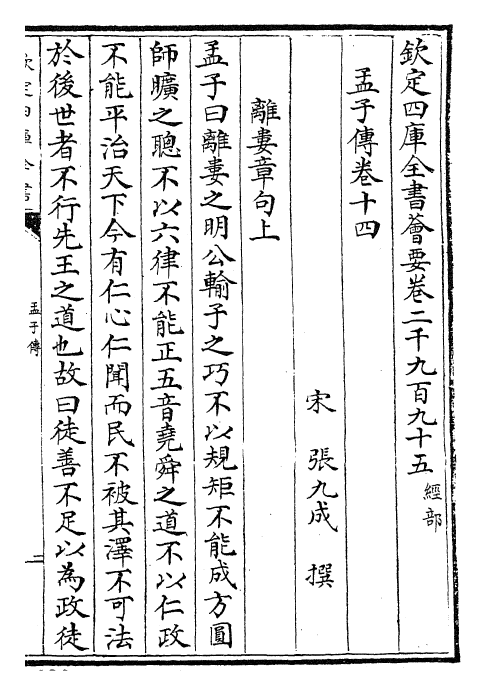 欽定四庫全書薈要卷二千九百九十五 經部
孟子傳卷十四
宋 張九成 撰
離婁章句上
孟子曰離婁之明公輸子之巧不以規矩不能成方圓
師曠之聰不以六律不能正五音堯舜之道不以仁政
不能平治天下今有仁心仁聞而民不被其澤不可法
於後世者不行先王之道也故曰徒善不足以為政徒
孟子傳